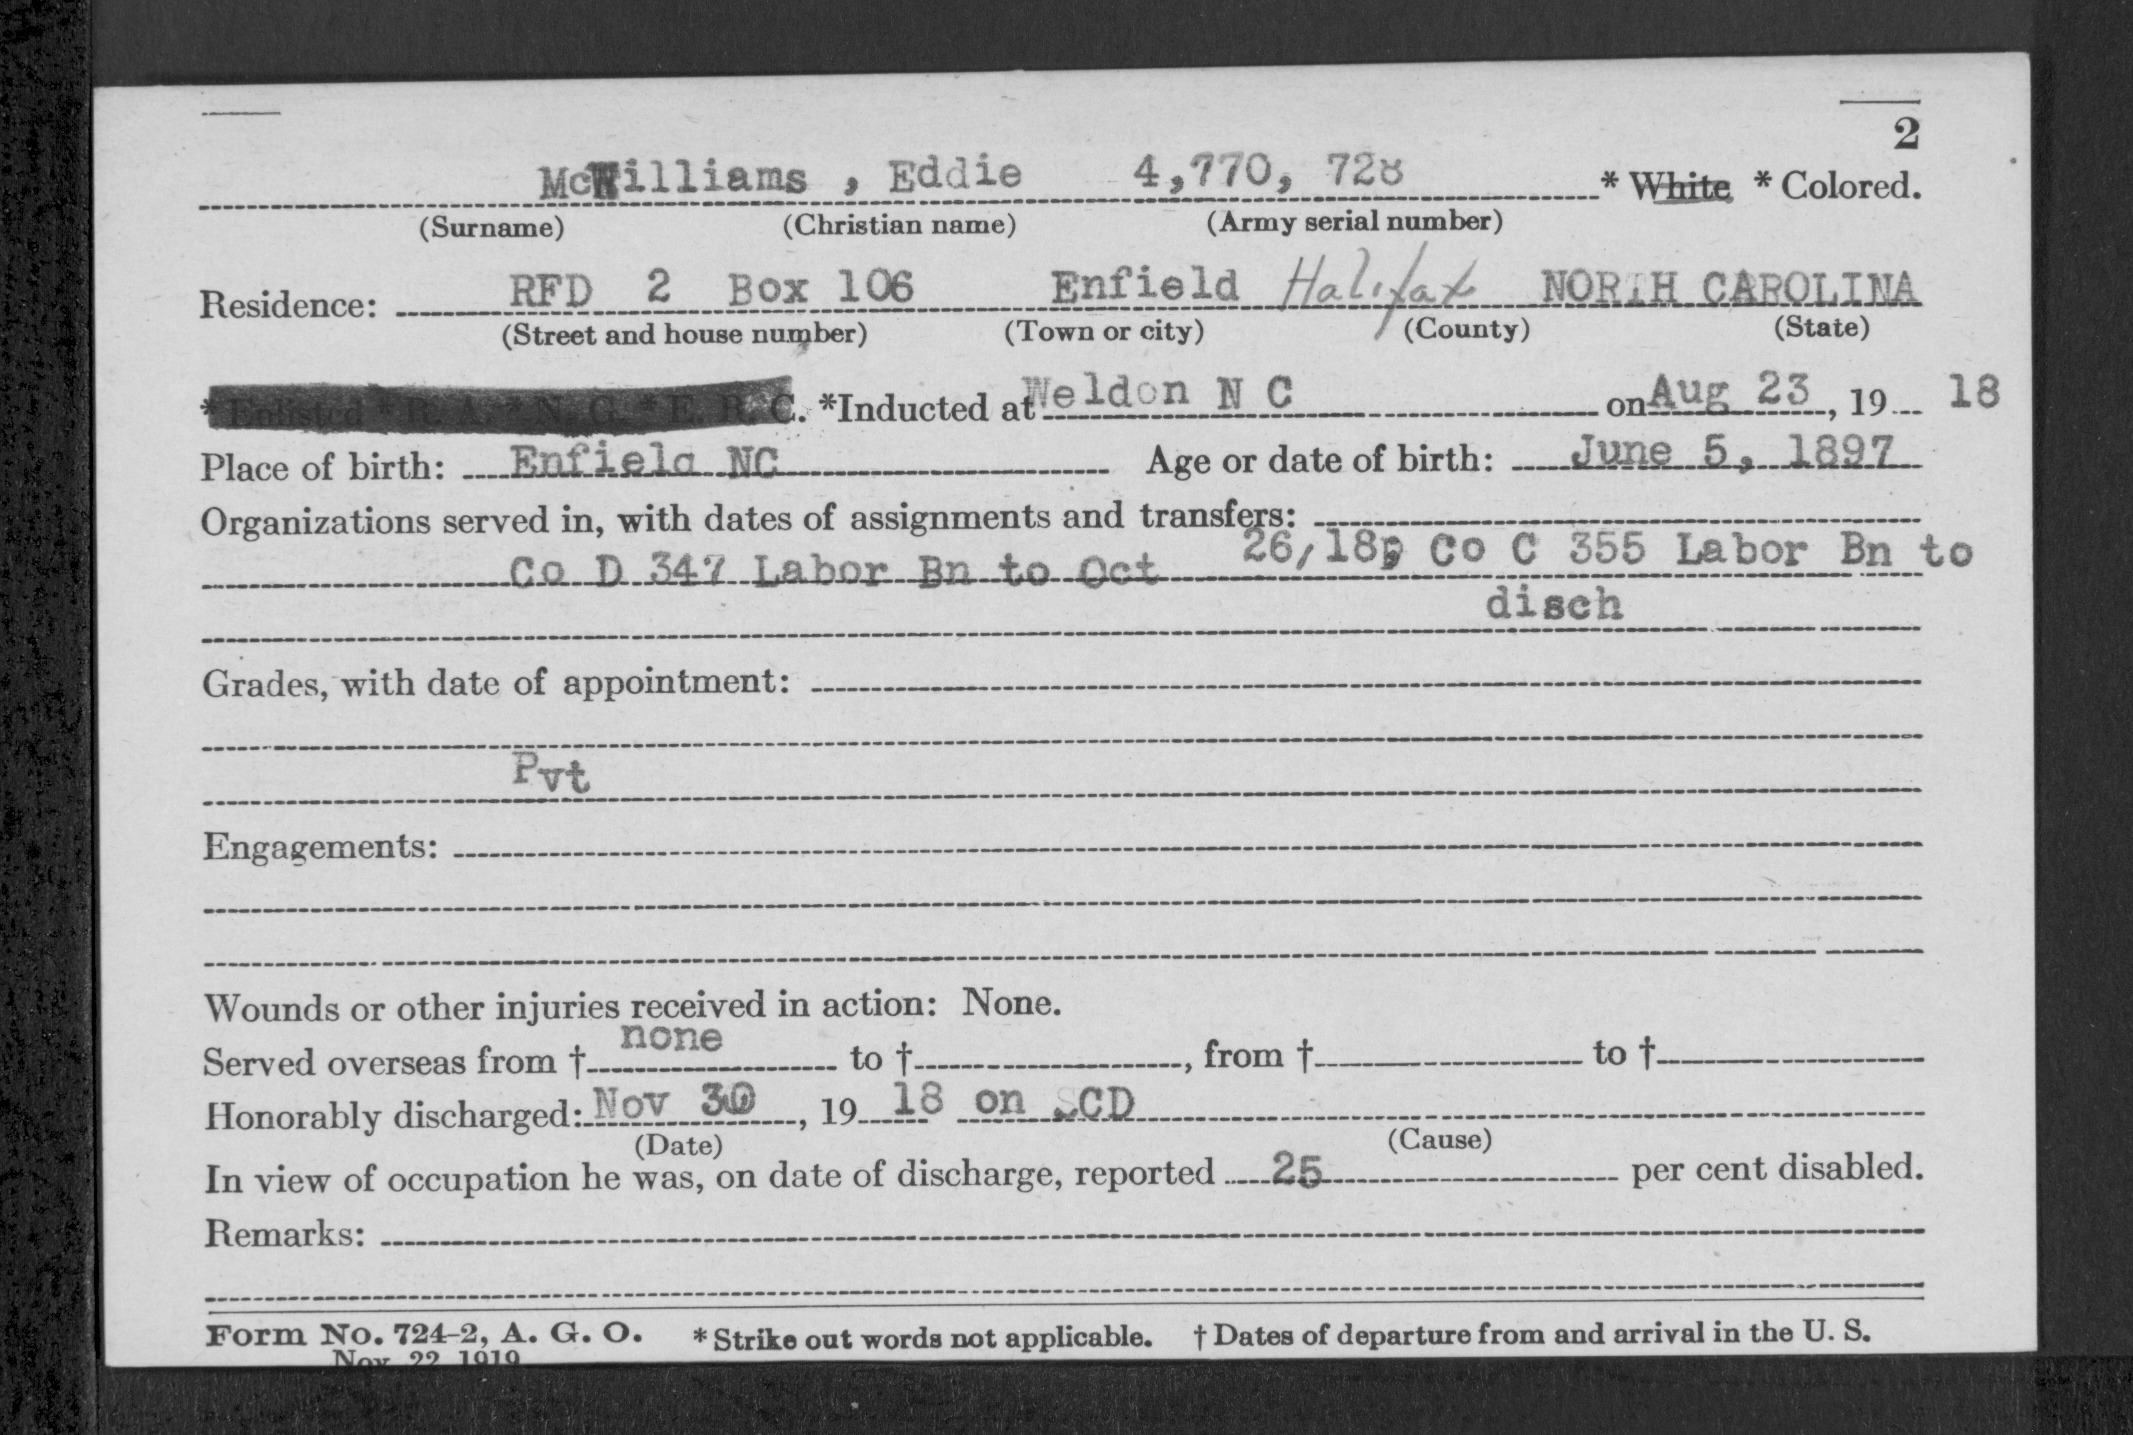 2
McWilliams , Eddie 4,770, 728 * White * Colored.
(Surname) (Christian name) (Army serial number)
Residence: RFD 2 Box 106 Enfield Halifax NORTH CAROLINA
(Street and house number) (Town or city) (County) (State)
* Enlisted * R. A. * N. G. * E. R. C. *Inducted at Weldon N C on Aug 23, 19 18
Place of birth: Enfield NC Age or date of birth: June 5, 1897
Organizations served in, with dates of assignments and transfers:
Co D 347 Labor Bn to Oct 26/18; Co C 355 Labor Bn to
disch
Grades, with date of appointment:
Pvt
Engagements:
Wounds or other injuries received in action: None.
Served overseas from † none to †, from † to †
Honorably discharged: Nov 30, 19 18 on SCD
(Date) (Cause)
In view of occupation he was, on date of discharge, reported 25 per cent disabled.
Remarks:
Form No. 724-2, A. G. O. * Strike out words not applicable. † Dates of departure from and arrival in the U. S.
Nov. 22 1919